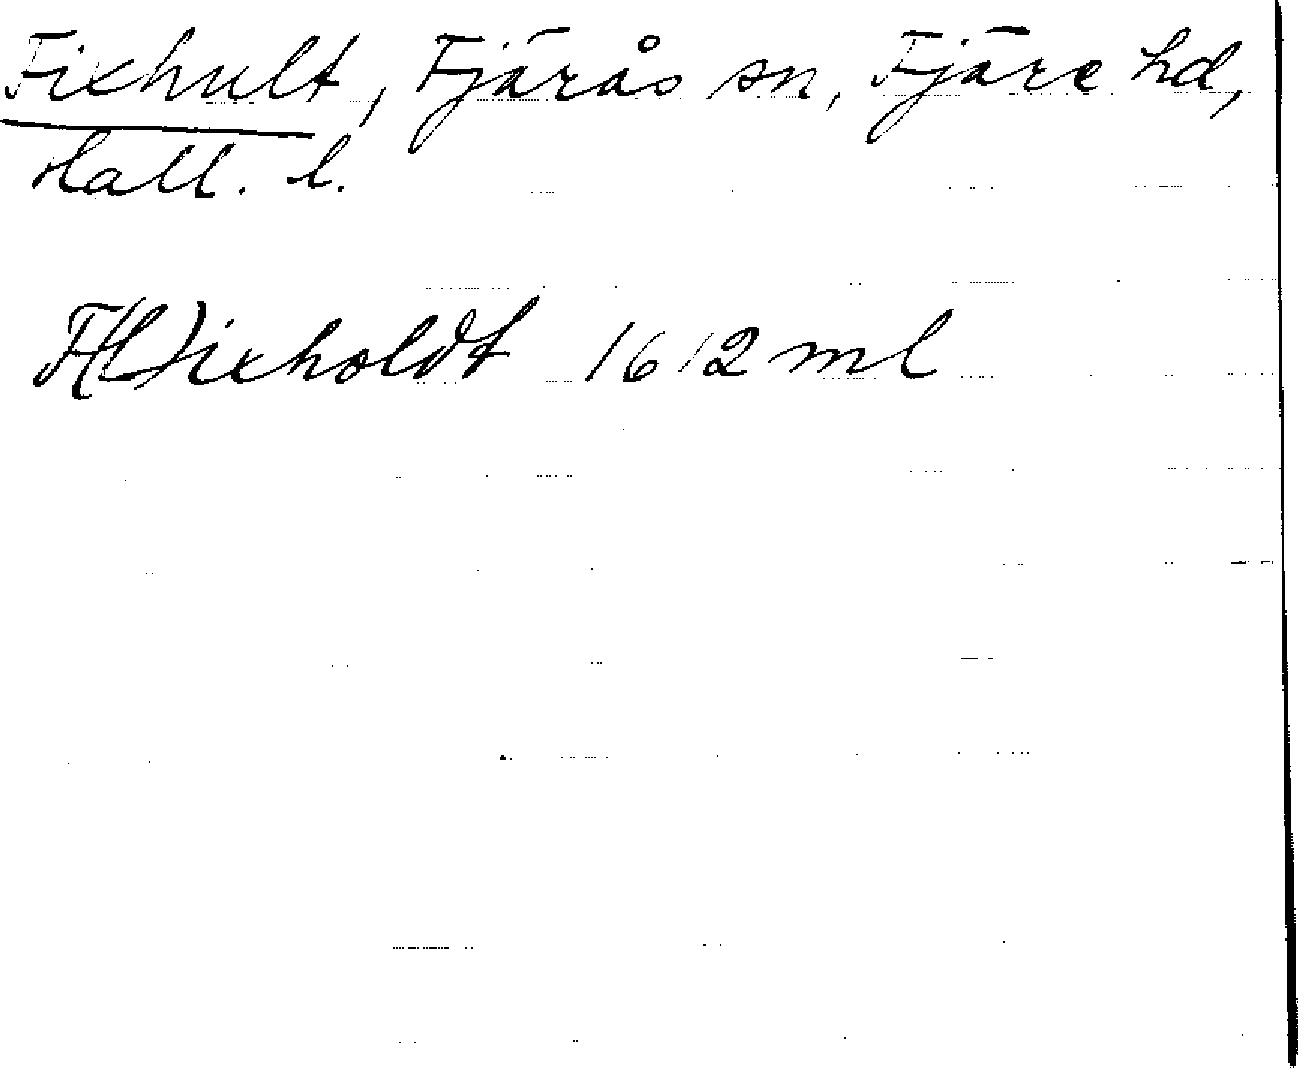 Fixhult, Fjärås sn, Fjäre hd,
Hall. l.
F(l)ixholdt 1612 ml